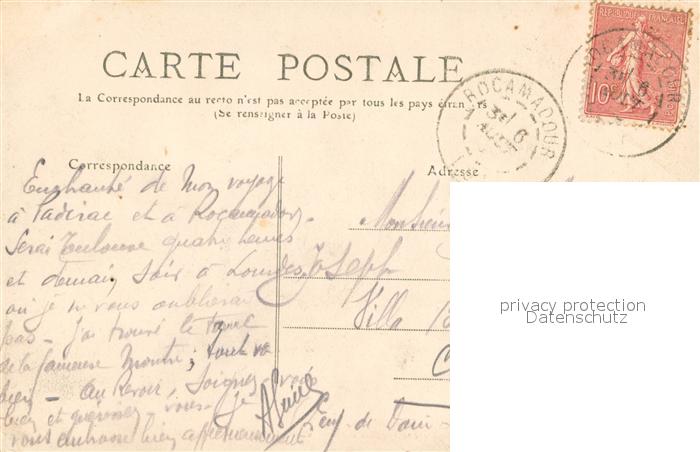 CARTE POSTALE
La Correspondance au recto n'est pas acceptée par tous les pays étrangers
(Se renseigner à la Poste)
Correspondance
Adresse
REPUBLIQUE FRANÇAISE
10
ROCAMADOUR
31
6
AOUT
Enchanté de mon voyage
à Padirac et à Rocamadour.
Serai Toulouse quatre heures
et demain soir à Lourdes
où je ne vous oublierai
pas - J'ai trouvé le
de la fameuse Montre; tout va
bien - Au Revoir, Soignez-vous
bien et guérissez-vous. Je
vous embrasse bien affectueusement
Monsieur
Joseph
Villa
privacy protection
Datenschutz